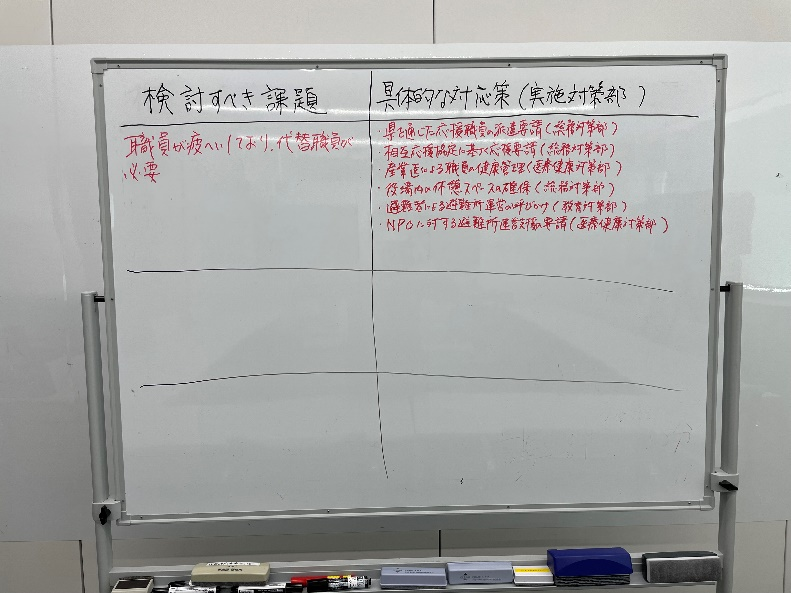 検討すべき課題
具体的な対応策(実施対策部)
職員が疲へいしており、代替職員が
必要
・県を通じた応援職員の派遣要請(総務対策部)
・相互応援協定に基づく応援要請(総務対策部)
・産業医による職員の健康管理(医療健康対策部)
・役場内の休憩スペースの確保(総務対策部)
・避難者による避難所運営の呼びかけ(教育対策部)
・NPOに対する避難所運営対応要請(医療健康対策部)